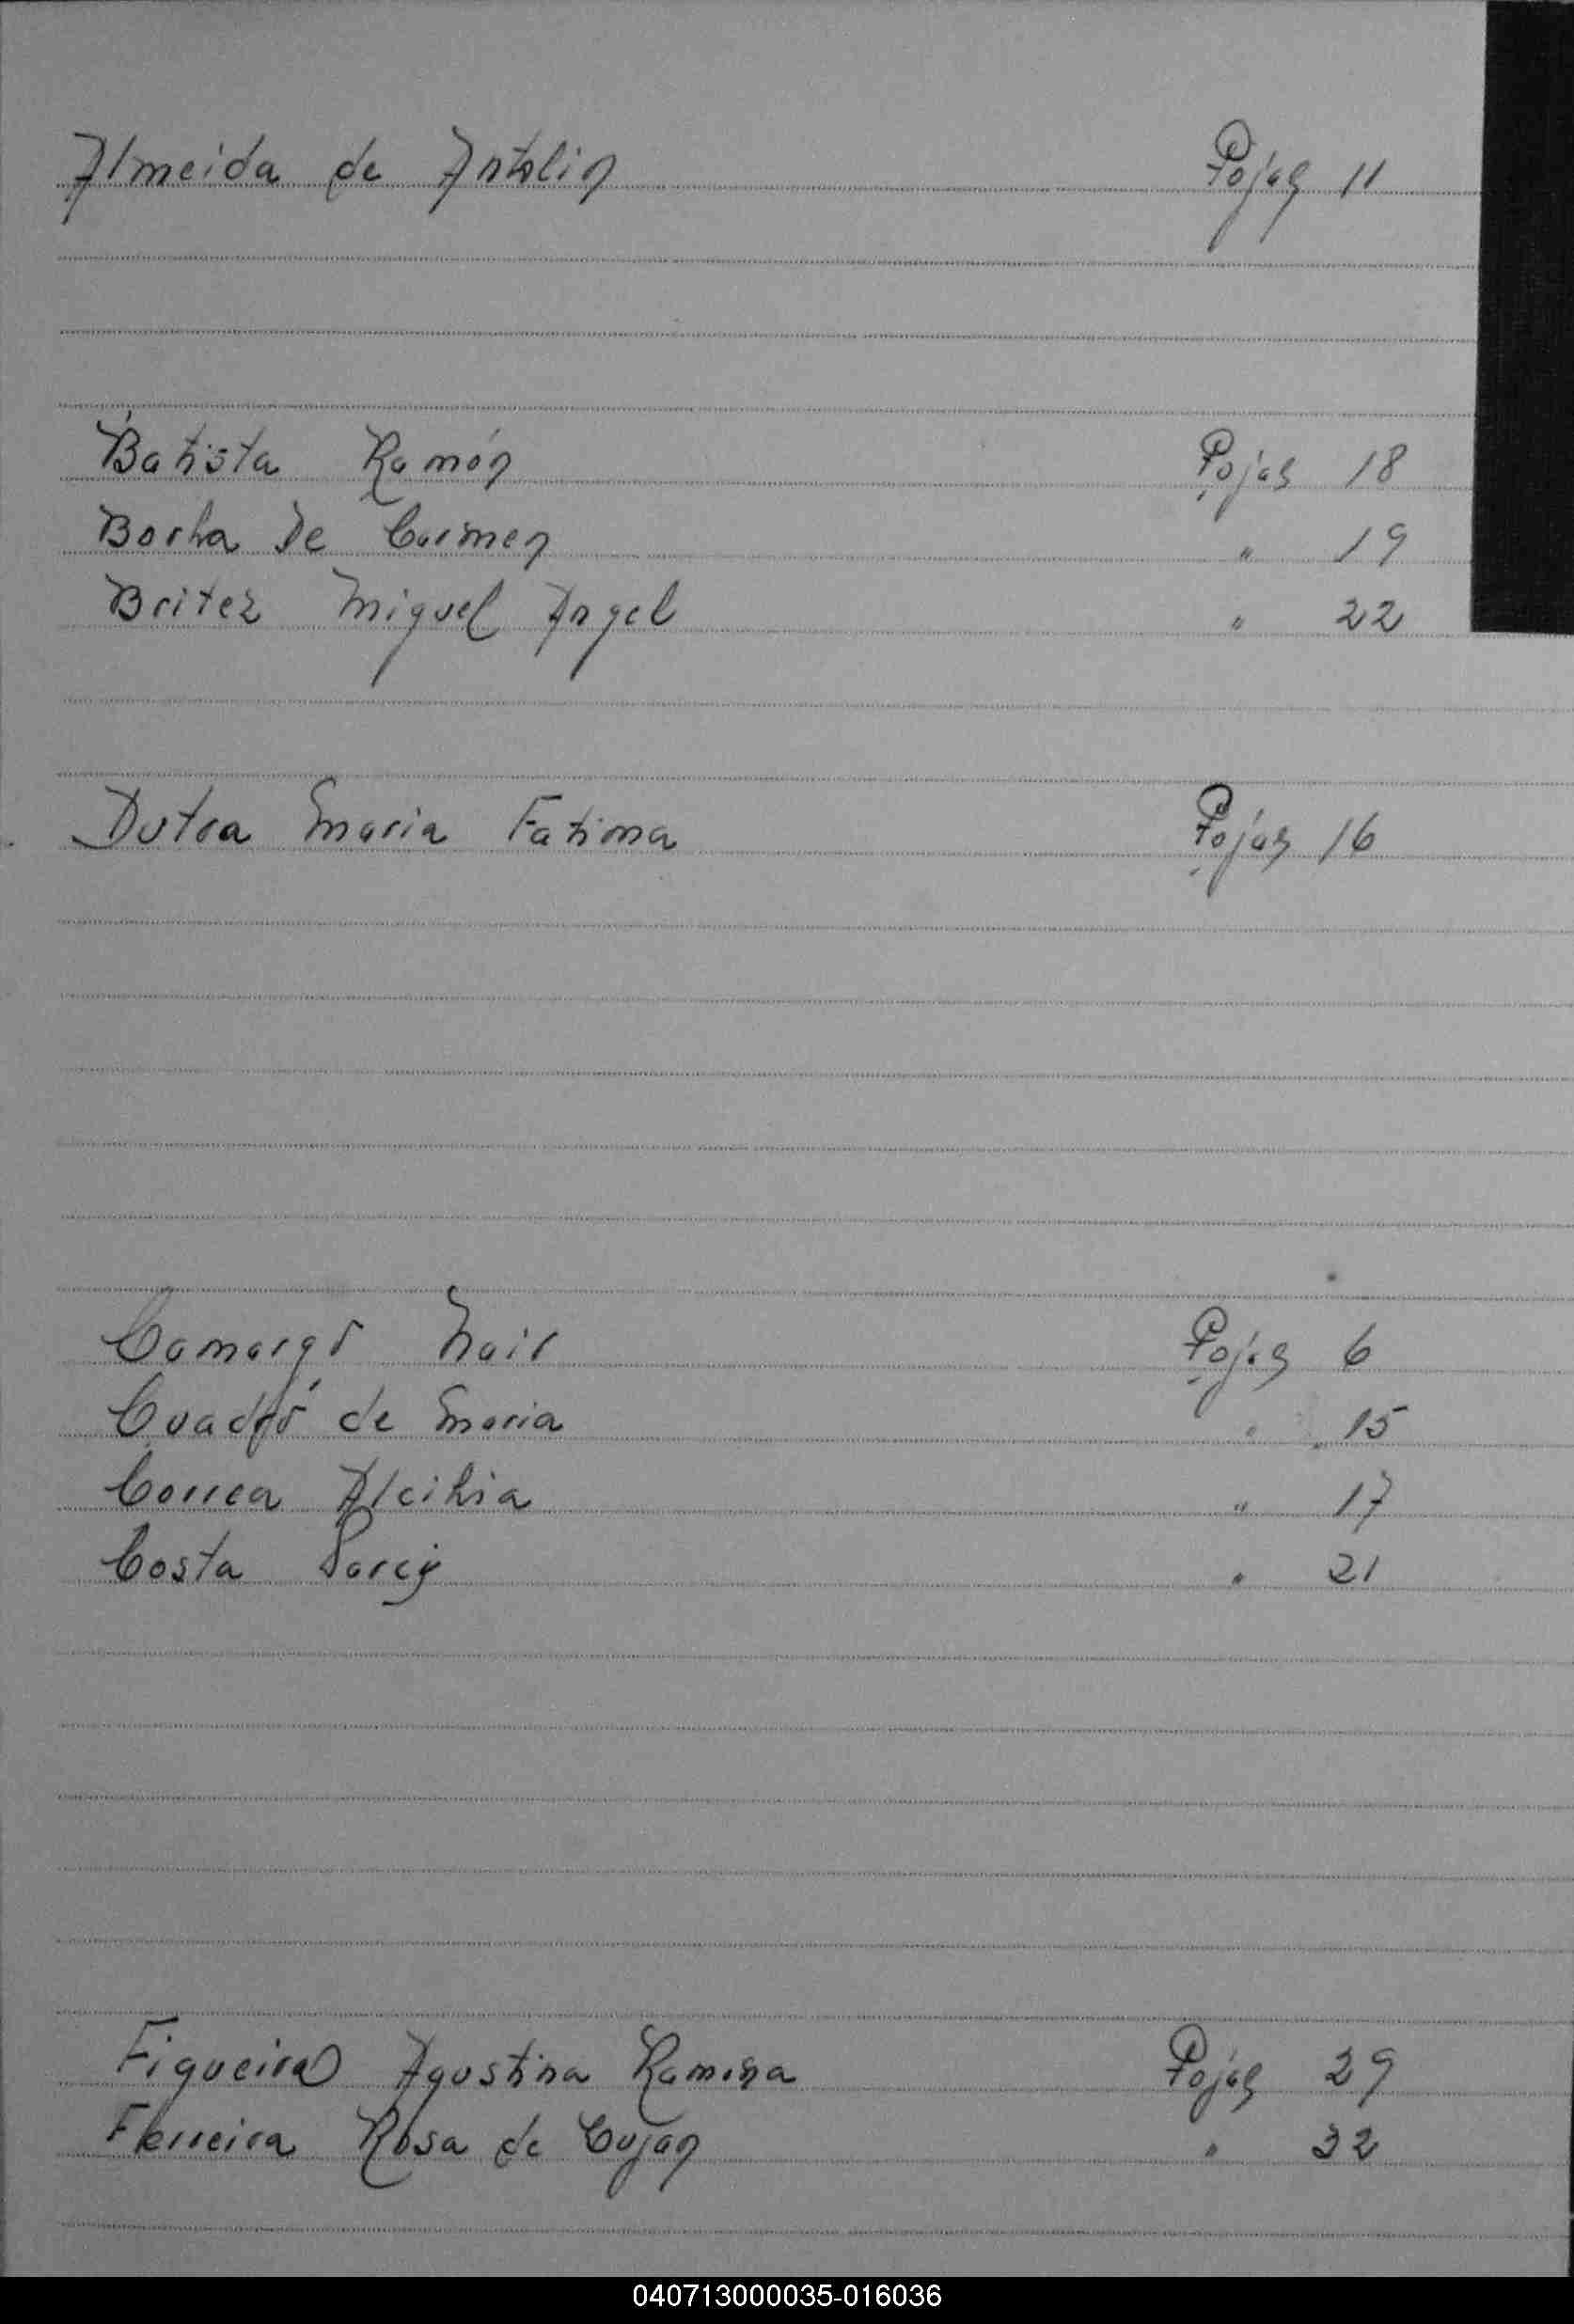 Almeida de Antolin Fojas 11
Batista Ramón Fojas 18
Borba De Carmen " 19
Britez Miguel Angel " 22
Dutra Maria Fatima Fojas 16
Camargo Nair Fojas 6
Cuadro de Maria " 15
Correa Alcibia " 17
Costa Darcy " 21
Figueira Agustina Ramona Fojas 29
Ferreira Rosa de Cujan " 32
040713000035-016036